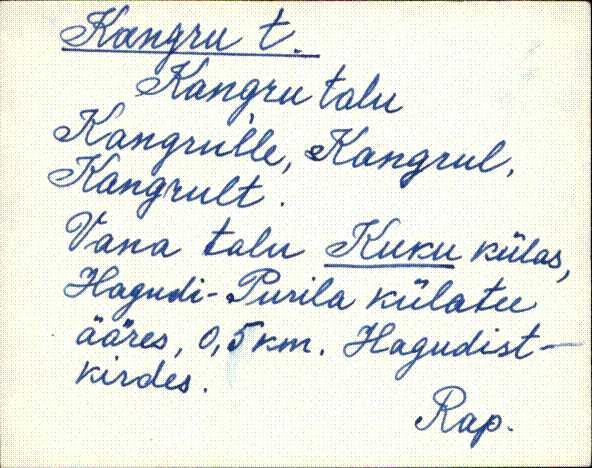 Kangru t.
Kangru talu
Kangrulle, Kangrul,
Kangrult.
Vana talu Kuku külas,
Hagudi-Purila külatee
ääres, 0,5 km. Hagudist-
kirdes.
Rap.